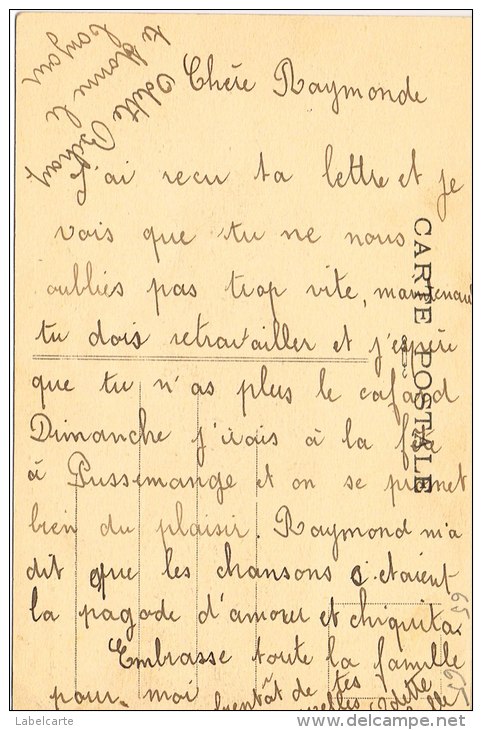 Chère Raymonde
J'ai recu ta lettre et je
vois que tu ne nous
oublies pas trop vite, maintenant
tu dois retravailler et j'espère
que tu n'as plus le cafard
Dimanche j'irais à la fête
à Pussemange et on se promet
bien du plaisir. Raymond m'a
dit que les chansons c'etaient
la pagode d'amour et chiquita.
Embrasse toute la famille
pour moi
bientôt de tes
Odette
te donne le
bonjour
Odette
CARTE POSTALE
65
65
Labelcarte
www.delcampe.net